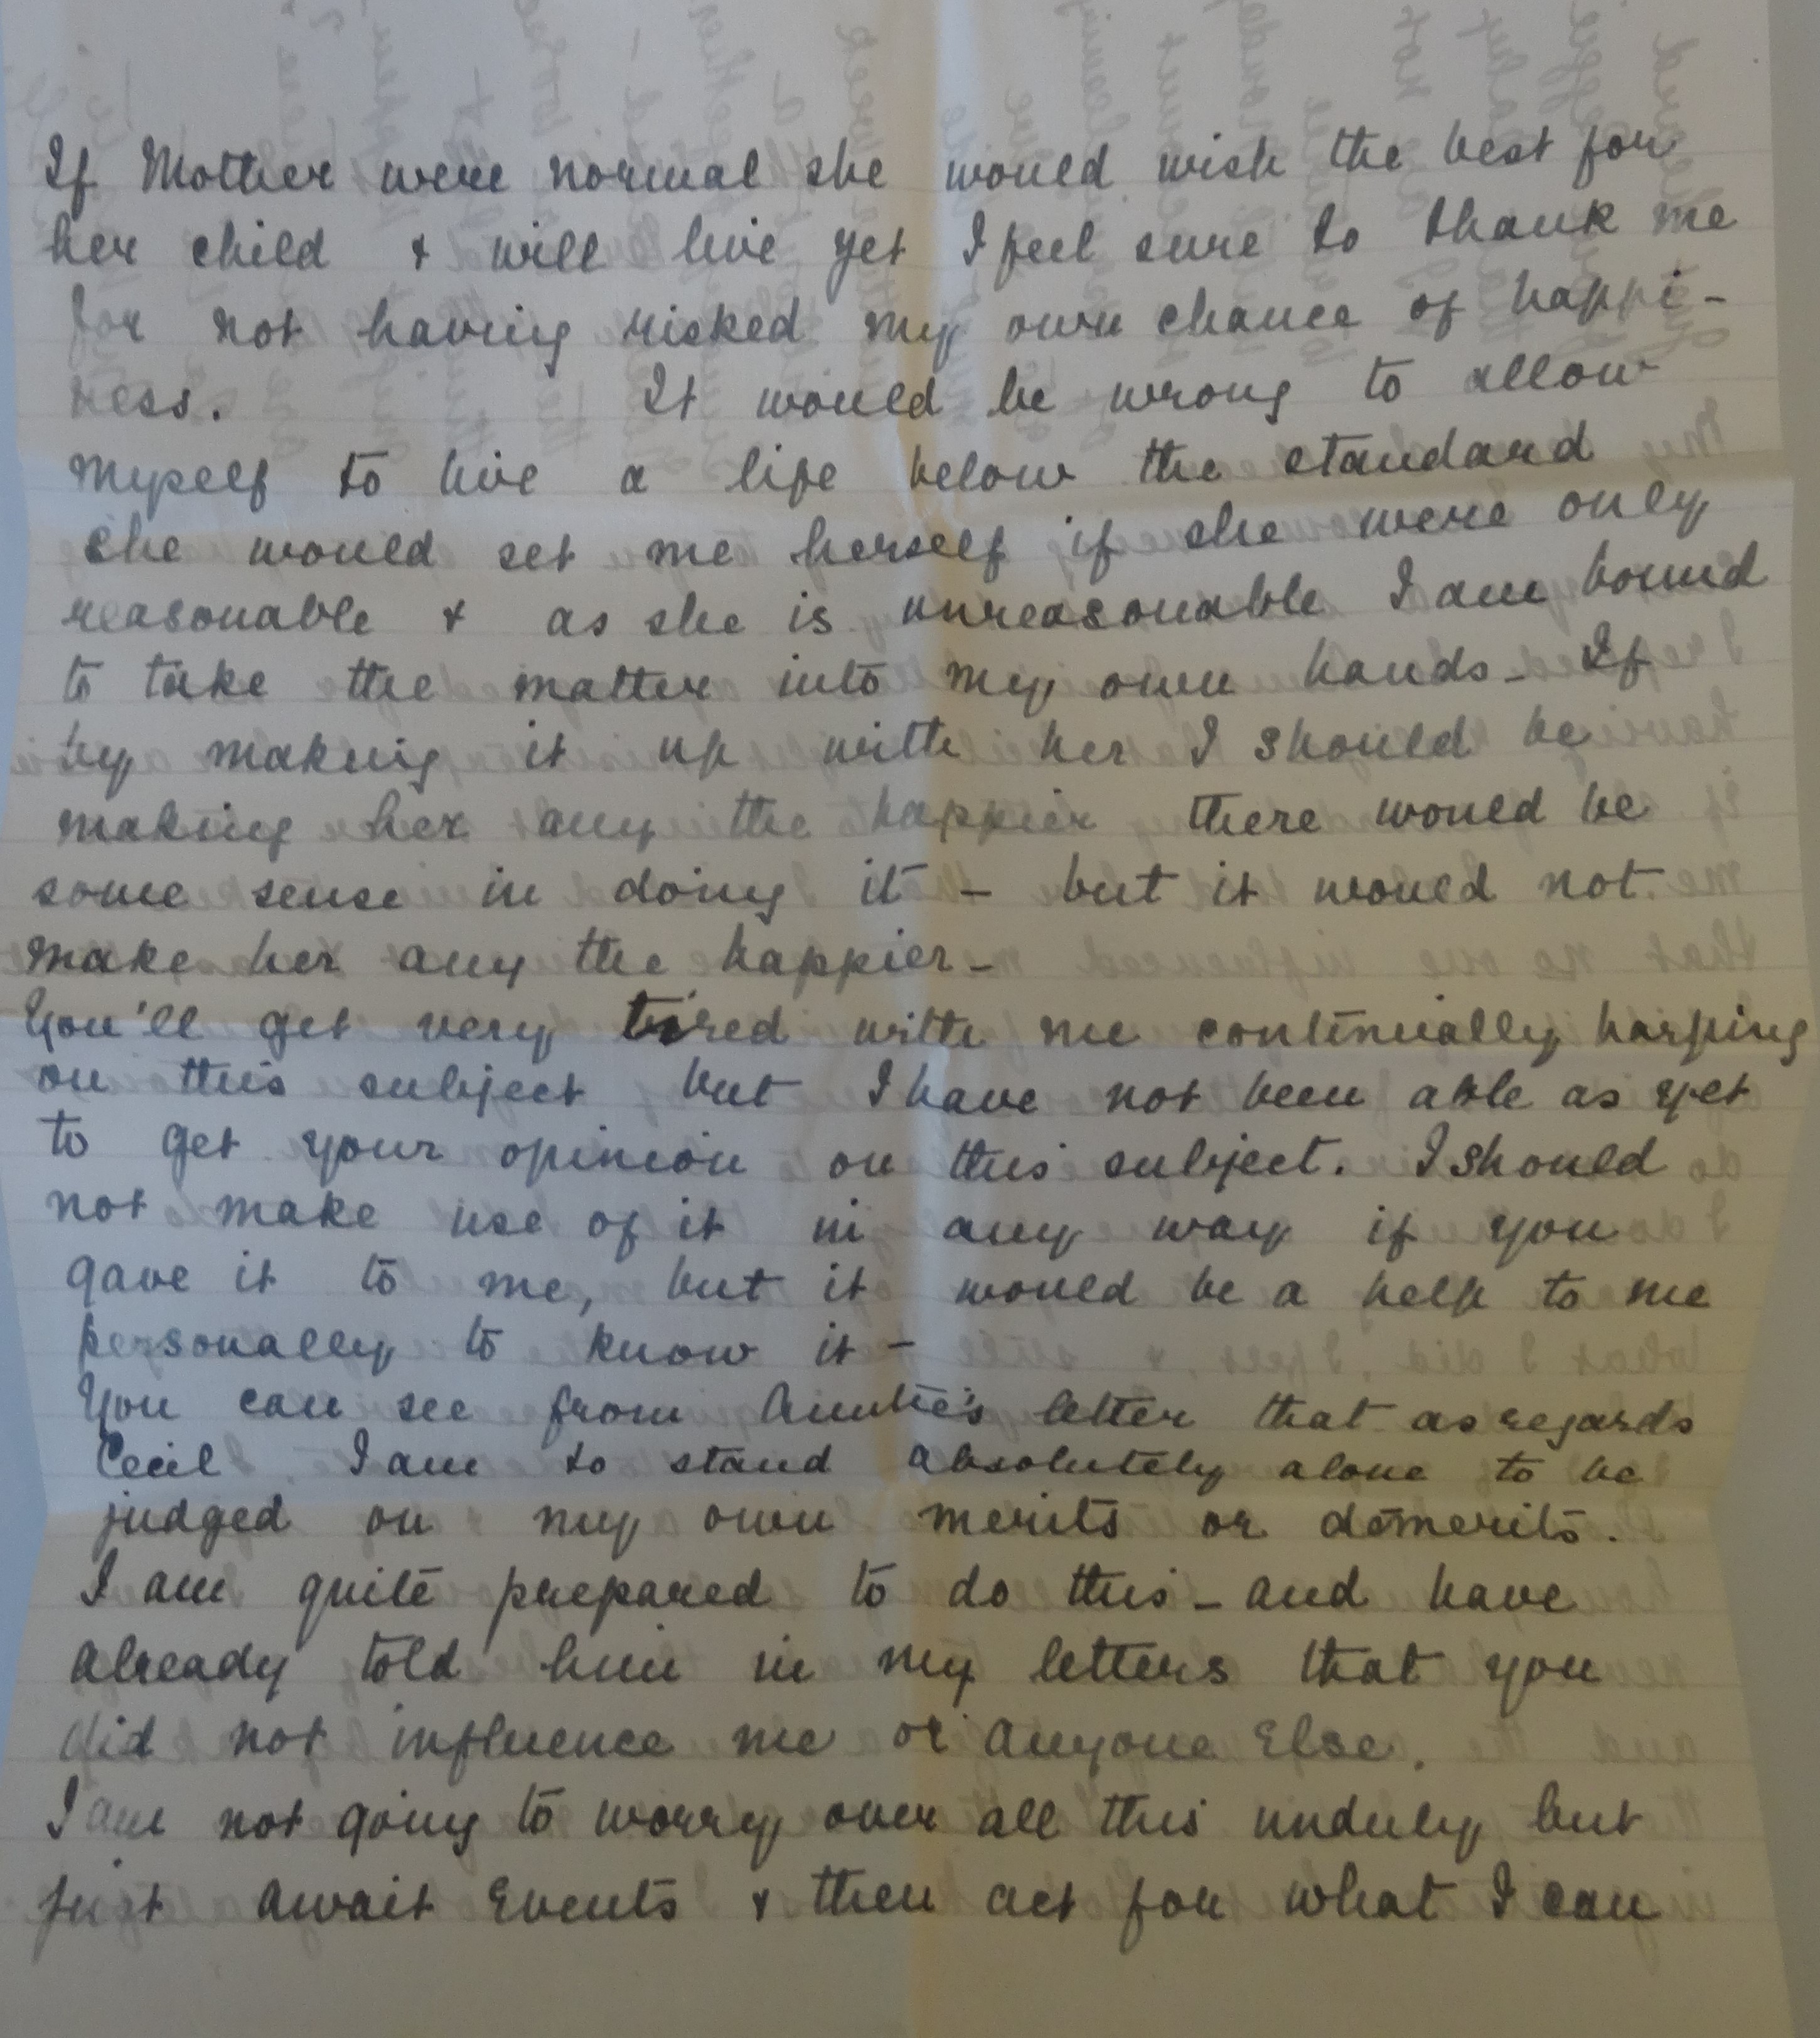 If Mother were normal she would wish the best for
her child & will live yet I feel sure to thank me
for not having risked my own chance of happi-
ness. It would be wrong to allow
myself to live a life below the standard
she would set me herself if she were only
reasonable & as she is unreasonable I am bound
to take the matter into my own hands - If
by making it up with her I should be
making her any the happier there would be
some sense in doing it - but it would not
make her any the happier -
You'll get very tired with me continually harping
on this subject but I have not been able as yet
to get your opinion on this subject. I should
not make use of it in any way if you
gave it to me, but it would be a help to me
personally to know it -
You can see from Auntie's letter that as regards
Cecil I am to stand absolutely alone to be
judged on my own merits or demerits.
I am quite prepared to do this - and have
already told him in my letters that you
did not influence me or anyone else.
I am not going to worry over all this unduly but
just await events & then act for what I can